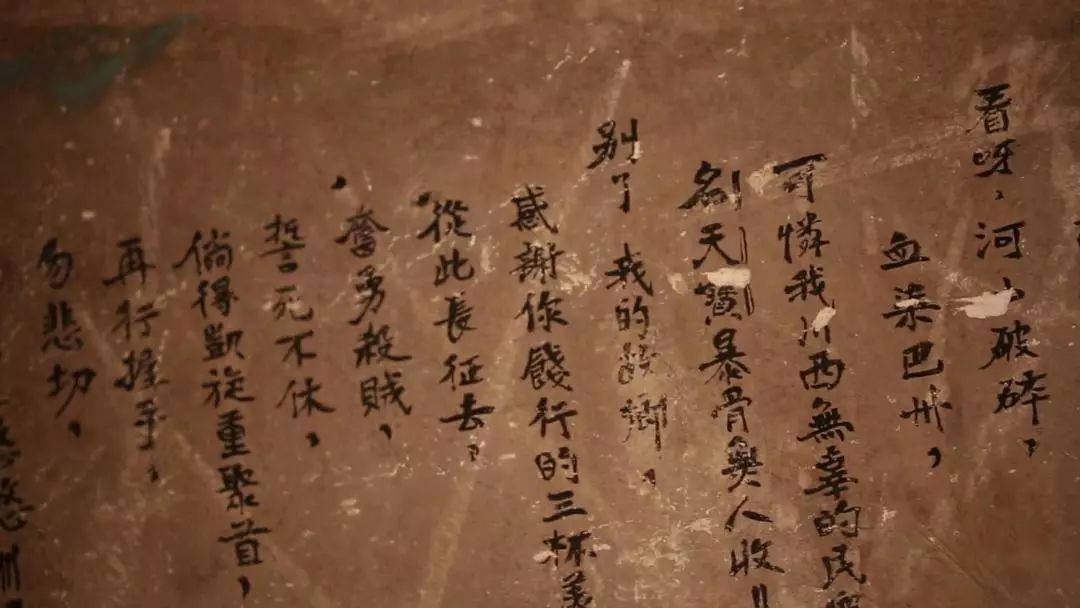 看呀，河山破碎，
血染巴州，
可憐我川西無辜的民眾
天寶暴骨無人收!!
别了 我的故鄉，
感謝你餞行的三杯美
從此長征去，
奮勇殺賊，
誓死不休，
倘得凱旋重聚首，
再行握手，
勿悲切，